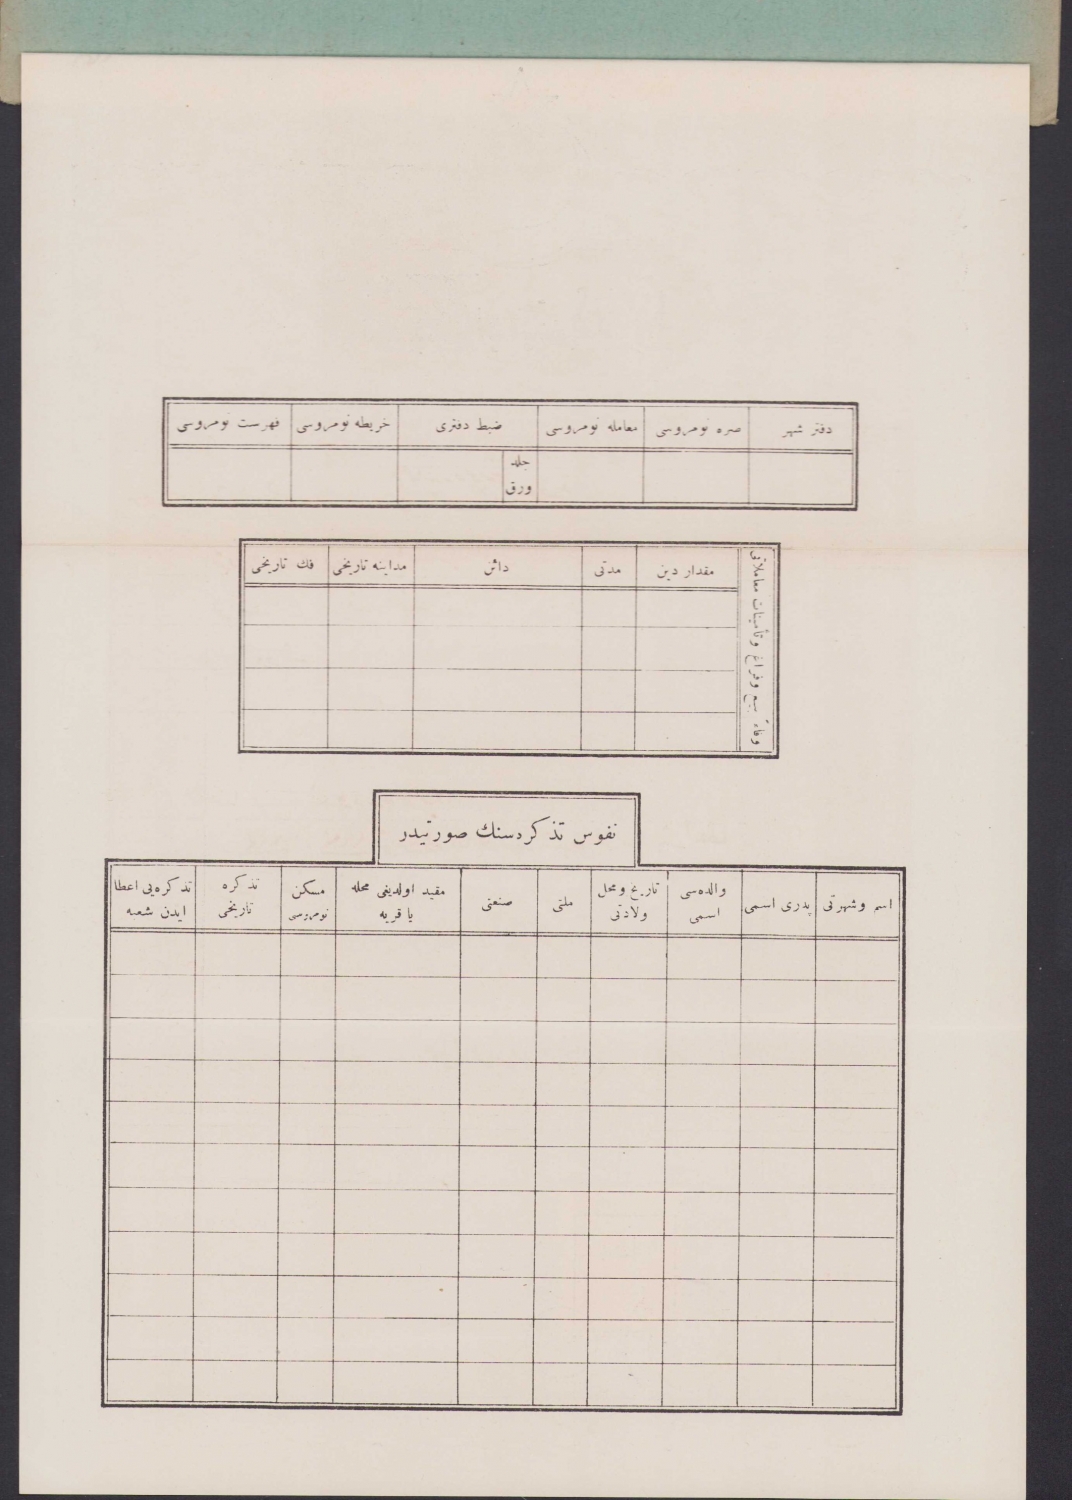 دفتر شهر	صره نومروسی	معامله نومروسی	ضبط دفتری	خریطه نومروسی	فهرست نومروسی
جلد
ورق
وفاءً بیع وفراغ وتأمینات معاملاتی
مقدار دین	مدتی	دائن	مداینه تاریخی	فك تاریخی
نفوس تذكره‌سنك صورتیدر
اسم وشهرتی	پدری اسمی	والده‌سی اسمی	تاریخ ومحل ولادتی	ملتی	صنعتی	مقید اولدیغی محله یا قریه	مسكن نومروسی	تذكره تاریخی	تذكره‌یی اعطا ایدن شعبه